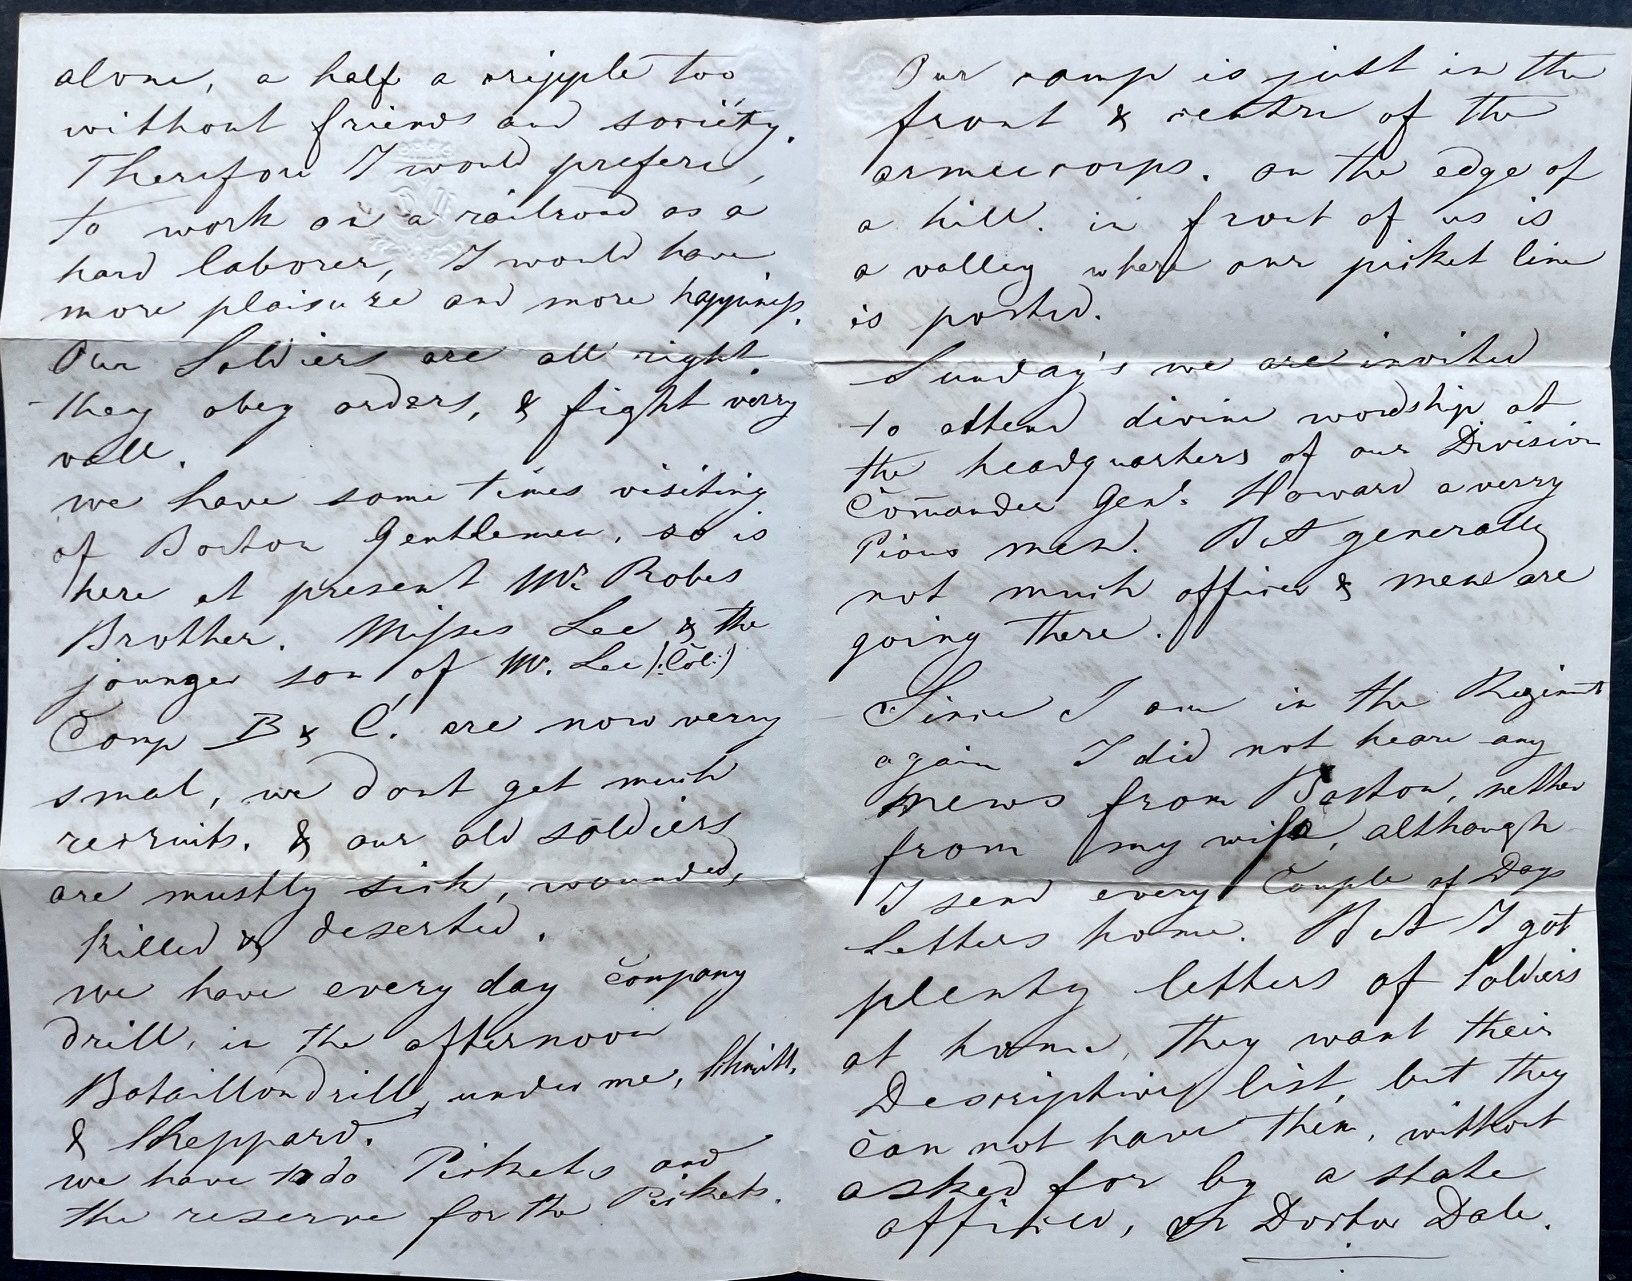 alone, a half a cripple too
without friends and society.
Therefore I would prefere,
to work on a railroad as a
hard laborer, I would have
more plaisure and more happiness.
Our Soldiers are all right.
they obey orders, & fight verry
well.
we have some times visiting
of Boston Gentlemen, so is
here at present Mr. Robes
Brother. Misses Lee & the
jounger son of Mr. Lee (:Col:)
Comp B & C. are now verry
smal, we dont get much
recruits. & our old soldiers
are mustly sick, wounded,
killed & deserted.
we have every day company
drill, in the afternoon
Bataillondrill, under me, Schmitt,
& Sheppard.
we have to do Pickets and
the reserve for the Pickets.
Our camp is just in the
front & centre of the
armeecorps. on the edge of
a hill. in front of us is
a valley where our picket line
is posted.
Sunday's we are invited
to attend divine wordship at
the headquarters of our Division
Comander Genl. Howard a verry
Pious man. But generally
not much officer & mens are
going there.
Since I am in the Regimt
again I did not heare any
news from Boston, nether
from my wife, although
I send every Couple of Days
Letters home. But I got
plenty letters of Soldiers
at home, they want their
Descriptive list, but they
can not have them, without
asked for by a state
officer, or Doctor Dale.